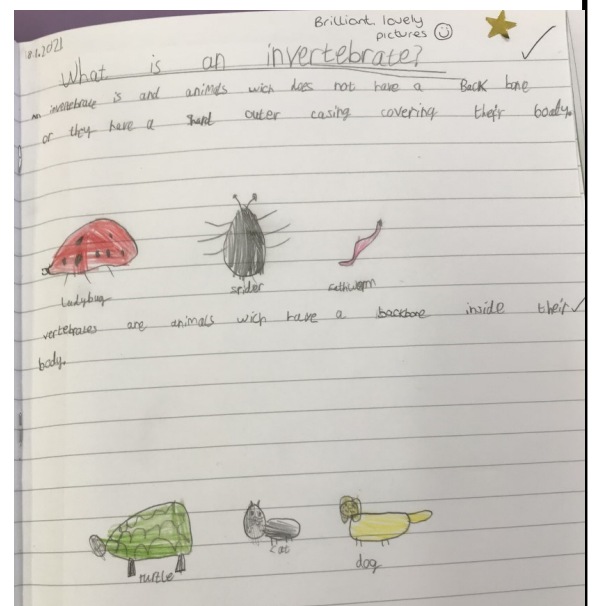 Brilliant. lovely
pictures
.1.2021
What is an invertebrate?
an invertebrate is and animals wich does not have a Back bone
or they have a hard outer casing covering their boady.
Ladybug spider eathworm
vertebrates are animals wich have a backbone inside their
body.
turtle cat dog